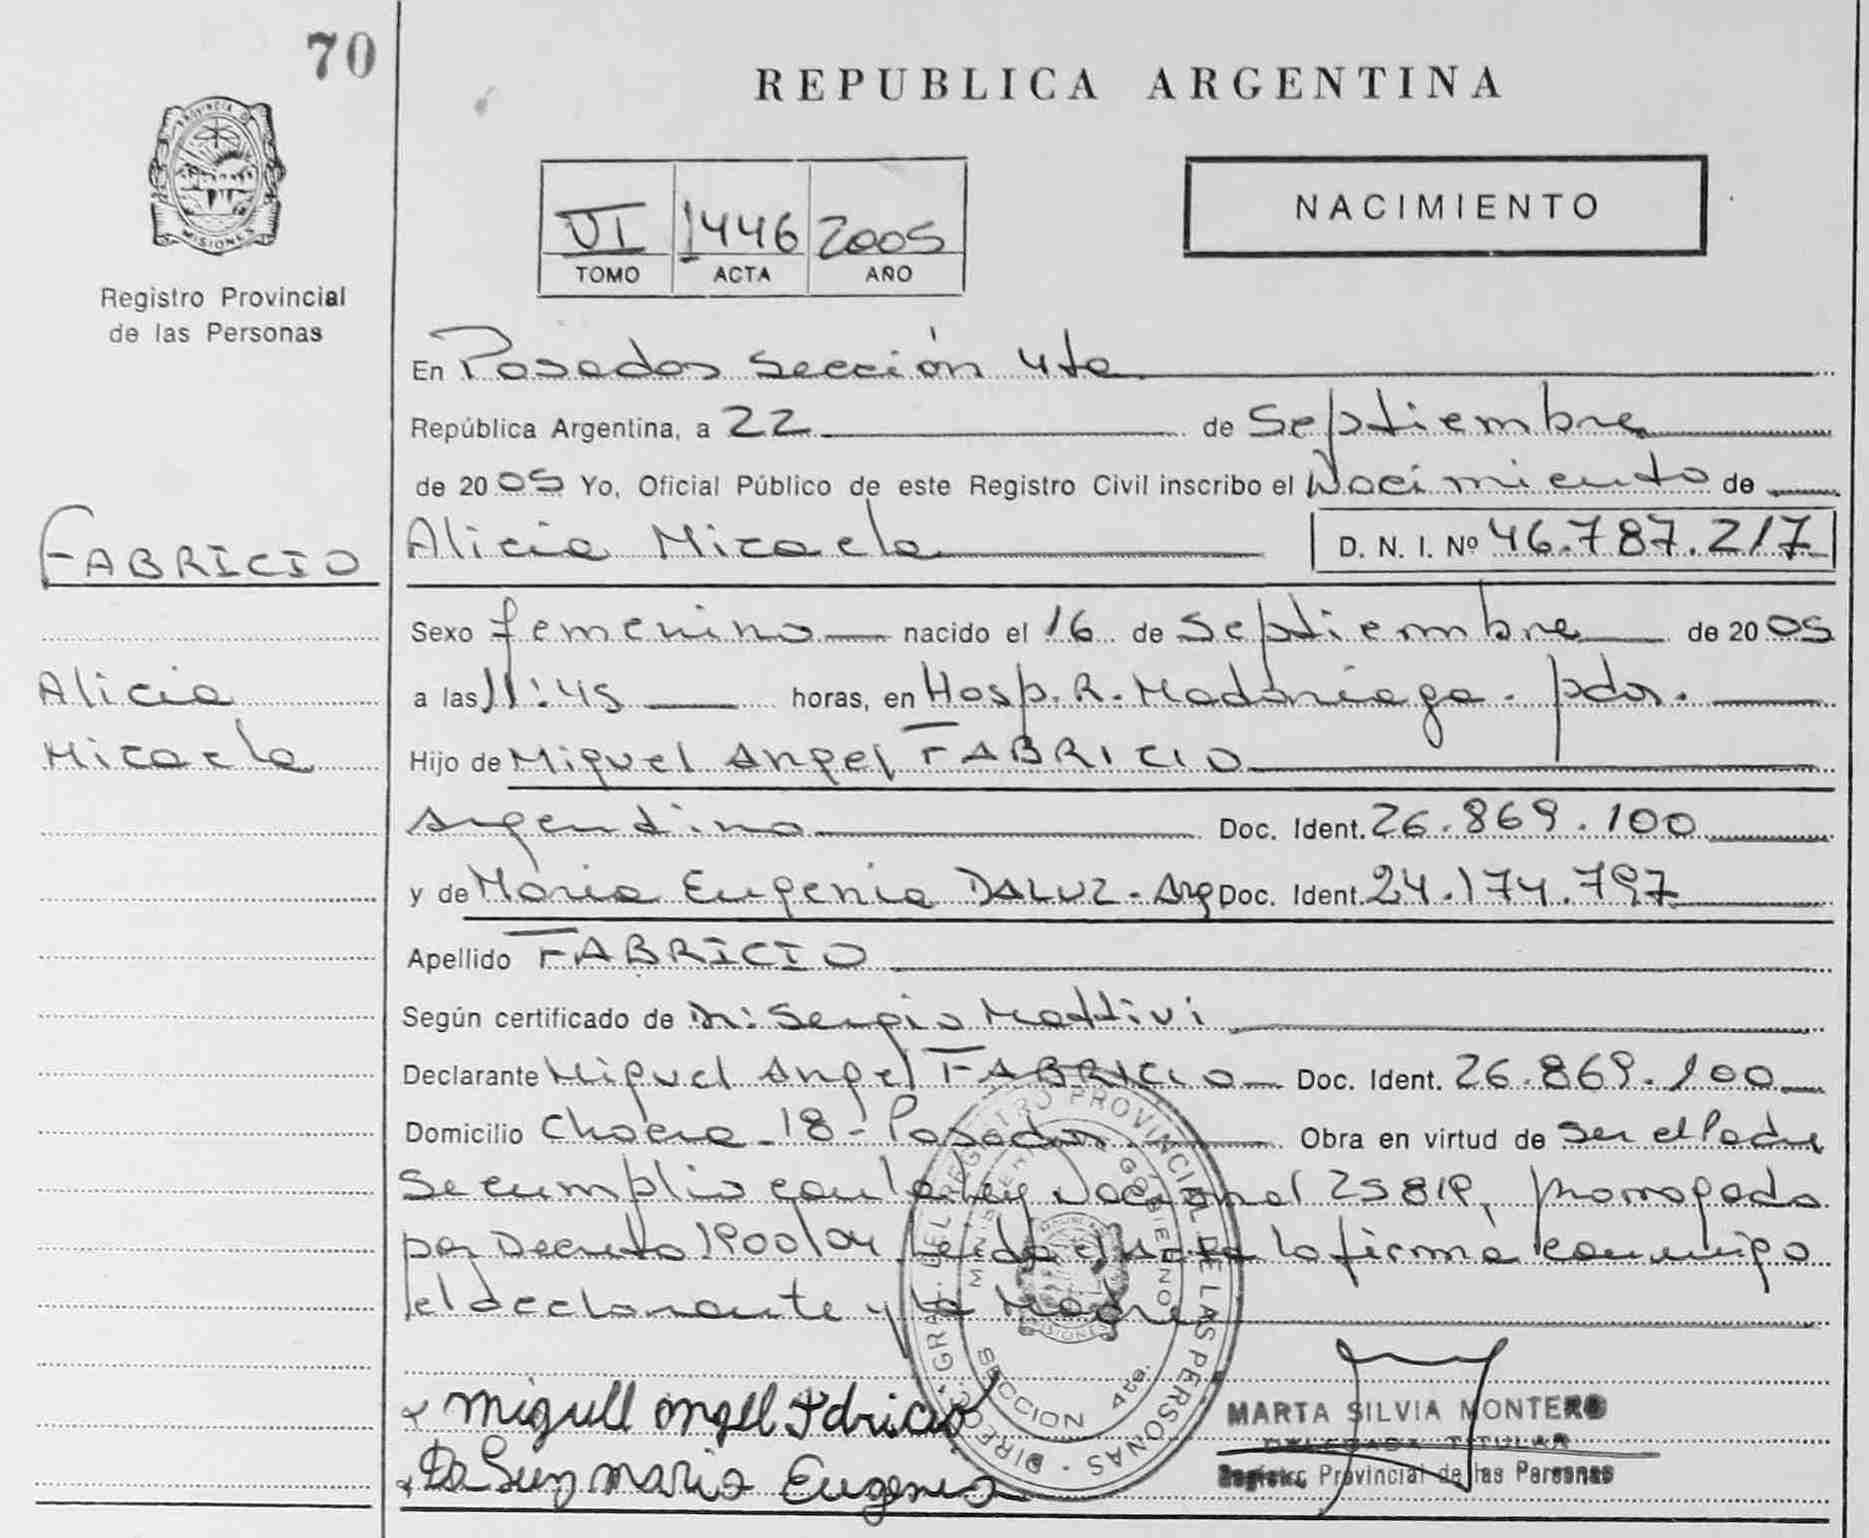 70
REPUBLICA ARGENTINA
PROVINCIA D MISIONES
Registro Provincial
de las Personas
VI 1446 2005
TOMO ACTA AÑO
NACIMIENTO
En Posadas Sección 4ta
República Argentina, a 22 de Septiembre
de 2005 Yo, Oficial Público de este Registro Civil inscribo el Nacimiento de
FABRICIO
Alicia Micaela D. N. I. Nº 46.787.217
Sexo femenino nacido el 16 de Septiembre de 2005
Alicia
Micaela
a las 11:45 horas, en Hosp. R. Madariaga - pdas.
Hijo de Miguel Angel FABRICIO
Argentino Doc. Ident. 26.869.100
y de Maria Eugenia DALUZ - Arg Doc. Ident. 24.174.797
Apellido FABRICIO
Según certificado de Dr: Sergio Mattivi
Declarante Miguel Angel FABRICIO Doc. Ident. 26.869.100
Domicilio Chacra 18 - Posadas Obra en virtud de ser el Padre
Se cumplio con la ley Nacional 25819, prorrogada
por Decreto 1900/04 Leida el Acta la firma conmigo
el declarante y la Madre
DIREC. GRAL. DEL REGISTRO PROVINCIAL DE LAS PERSONAS
MINISTERIO GOBIERNO
MISIONES
SECCION 4ta.
Miguell angell Fabricio
Da Luz maria Eugenia
MARTA SILVIA MONTERO
DELEGADA TITULAR
Registro Provincial de las Personas